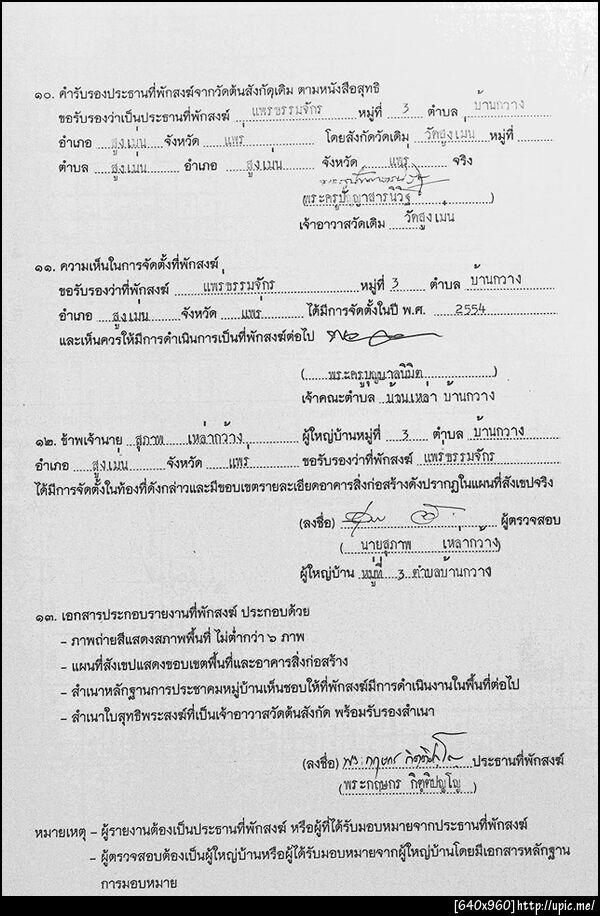 ๑๐. คำรับรองประธานที่พักสงฆ์จากวัดต้นสังกัดเดิม ตามหนังสือสุทธิ
ขอรับรองว่าเป็นประธานที่พักสงฆ์ แพร่ธรรมจักร หมู่ที่ 3 ตำบล บ้านกวาง
อำเภอ สูงเม่น จังหวัด แพร่ โดยสังกัดวัดเดิม วัดสูงเม่น หมู่ที่
ตำบล สูงเม่น อำเภอ สูงเม่น จังหวัด แพร่ จริง
(พระครูปัญญาสารนิวิฐ)
เจ้าอาวาสวัดเดิม วัดสูงเม่น
๑๑. ความเห็นในการจัดตั้งที่พักสงฆ์
ขอรับรองว่าที่พักสงฆ์ แพร่ธรรมจักร หมู่ที่ 3 ตำบล บ้านกวาง
อำเภอ สูงเม่น จังหวัด แพร่ ได้มีการจัดตั้งในปี พ.ศ. 2554
และเห็นควรให้มีการดำเนินการเป็นที่พักสงฆ์ต่อไป
(พระครูบุญบาลนิมิต)
เจ้าคณะตำบล บ้านเหล่า บ้านกวาง
๑๒. ข้าพเจ้านาย สุภาพ เหล่ากว้าง ผู้ใหญ่บ้านหมู่ที่ 3 ตำบล บ้านกวาง
อำเภอ สูงเม่น จังหวัด แพร่ ขอรับรองว่าที่พักสงฆ์ แพร่ธรรมจักร
ได้มีการจัดตั้งในท้องที่ดังกล่าวและมีขอบเขตรายละเอียดอาคารสิ่งก่อสร้างดังปรากฏในแผนที่สังเขปจริง
(ลงชื่อ) ผู้ตรวจสอบ
(นายสุภาพ เหล่ากว้าง)
ผู้ใหญ่บ้าน หมู่ที่ 3 ตำบลบ้านกวาง
๑๓. เอกสารประกอบรายงานที่พักสงฆ์ ประกอบด้วย
– ภาพถ่ายสีแสดงสภาพพื้นที่ ไม่ต่ำกว่า ๖ ภาพ
– แผนที่สังเขปแสดงขอบเขตพื้นที่และอาคารสิ่งก่อสร้าง
– สำเนาหลักฐานการประชาคมหมู่บ้านเห็นชอบให้ที่พักสงฆ์มีการดำเนินงานในพื้นที่ต่อไป
– สำเนาใบสุทธิพระสงฆ์ที่เป็นเจ้าอาวาสวัดต้นสังกัด พร้อมรับรองสำเนา
(ลงชื่อ) พระกฤษกร กิตติปญฺโญ ประธานที่พักสงฆ์
(พระกฤษกร กิตฺติปญฺโญ)
หมายเหตุ – ผู้รายงานต้องเป็นประธานที่พักสงฆ์ หรือผู้ที่ได้รับมอบหมายจากประธานที่พักสงฆ์
– ผู้ตรวจสอบต้องเป็นผู้ใหญ่บ้านหรือผู้ได้รับมอบหมายจากผู้ใหญ่บ้านโดยมีเอกสารหลักฐาน
การมอบหมาย
[640x960]http://upic.me/